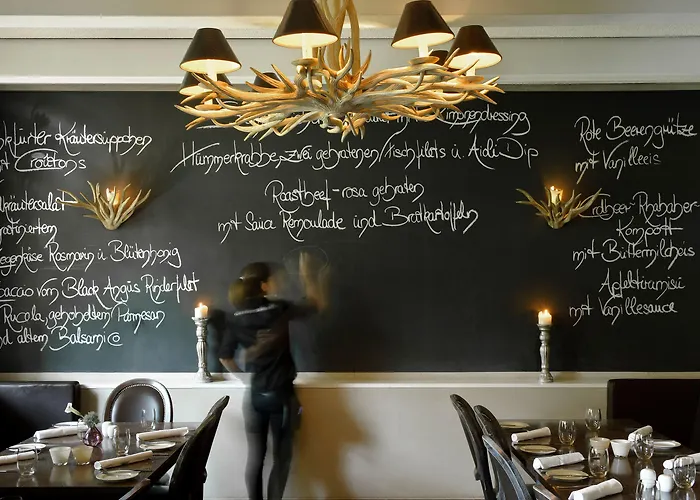 kfurter Kräutersüppchen
mit Croutons
kräutersalat
gratiniertem
egenkäse Rosmarin u. Blütenhonig
paccio vom Black Angus Rinderfilet
Rucola, gehobeltem Parmesan
nd altem Balsamico
imonendressing
Hummerkrabbe, zwei gebratenen Fischfilets u. Aioli Dip
Roastbeef - rosa gebraten
mit Sauce Remoulade und Bratkartoffeln
Rote Beerengrütze
mit Vanilleeis
Erdbeer-Rhabarber-
Kompott
mit Buttermilcheis
Apfeltiramisu
mit Vanillesauce